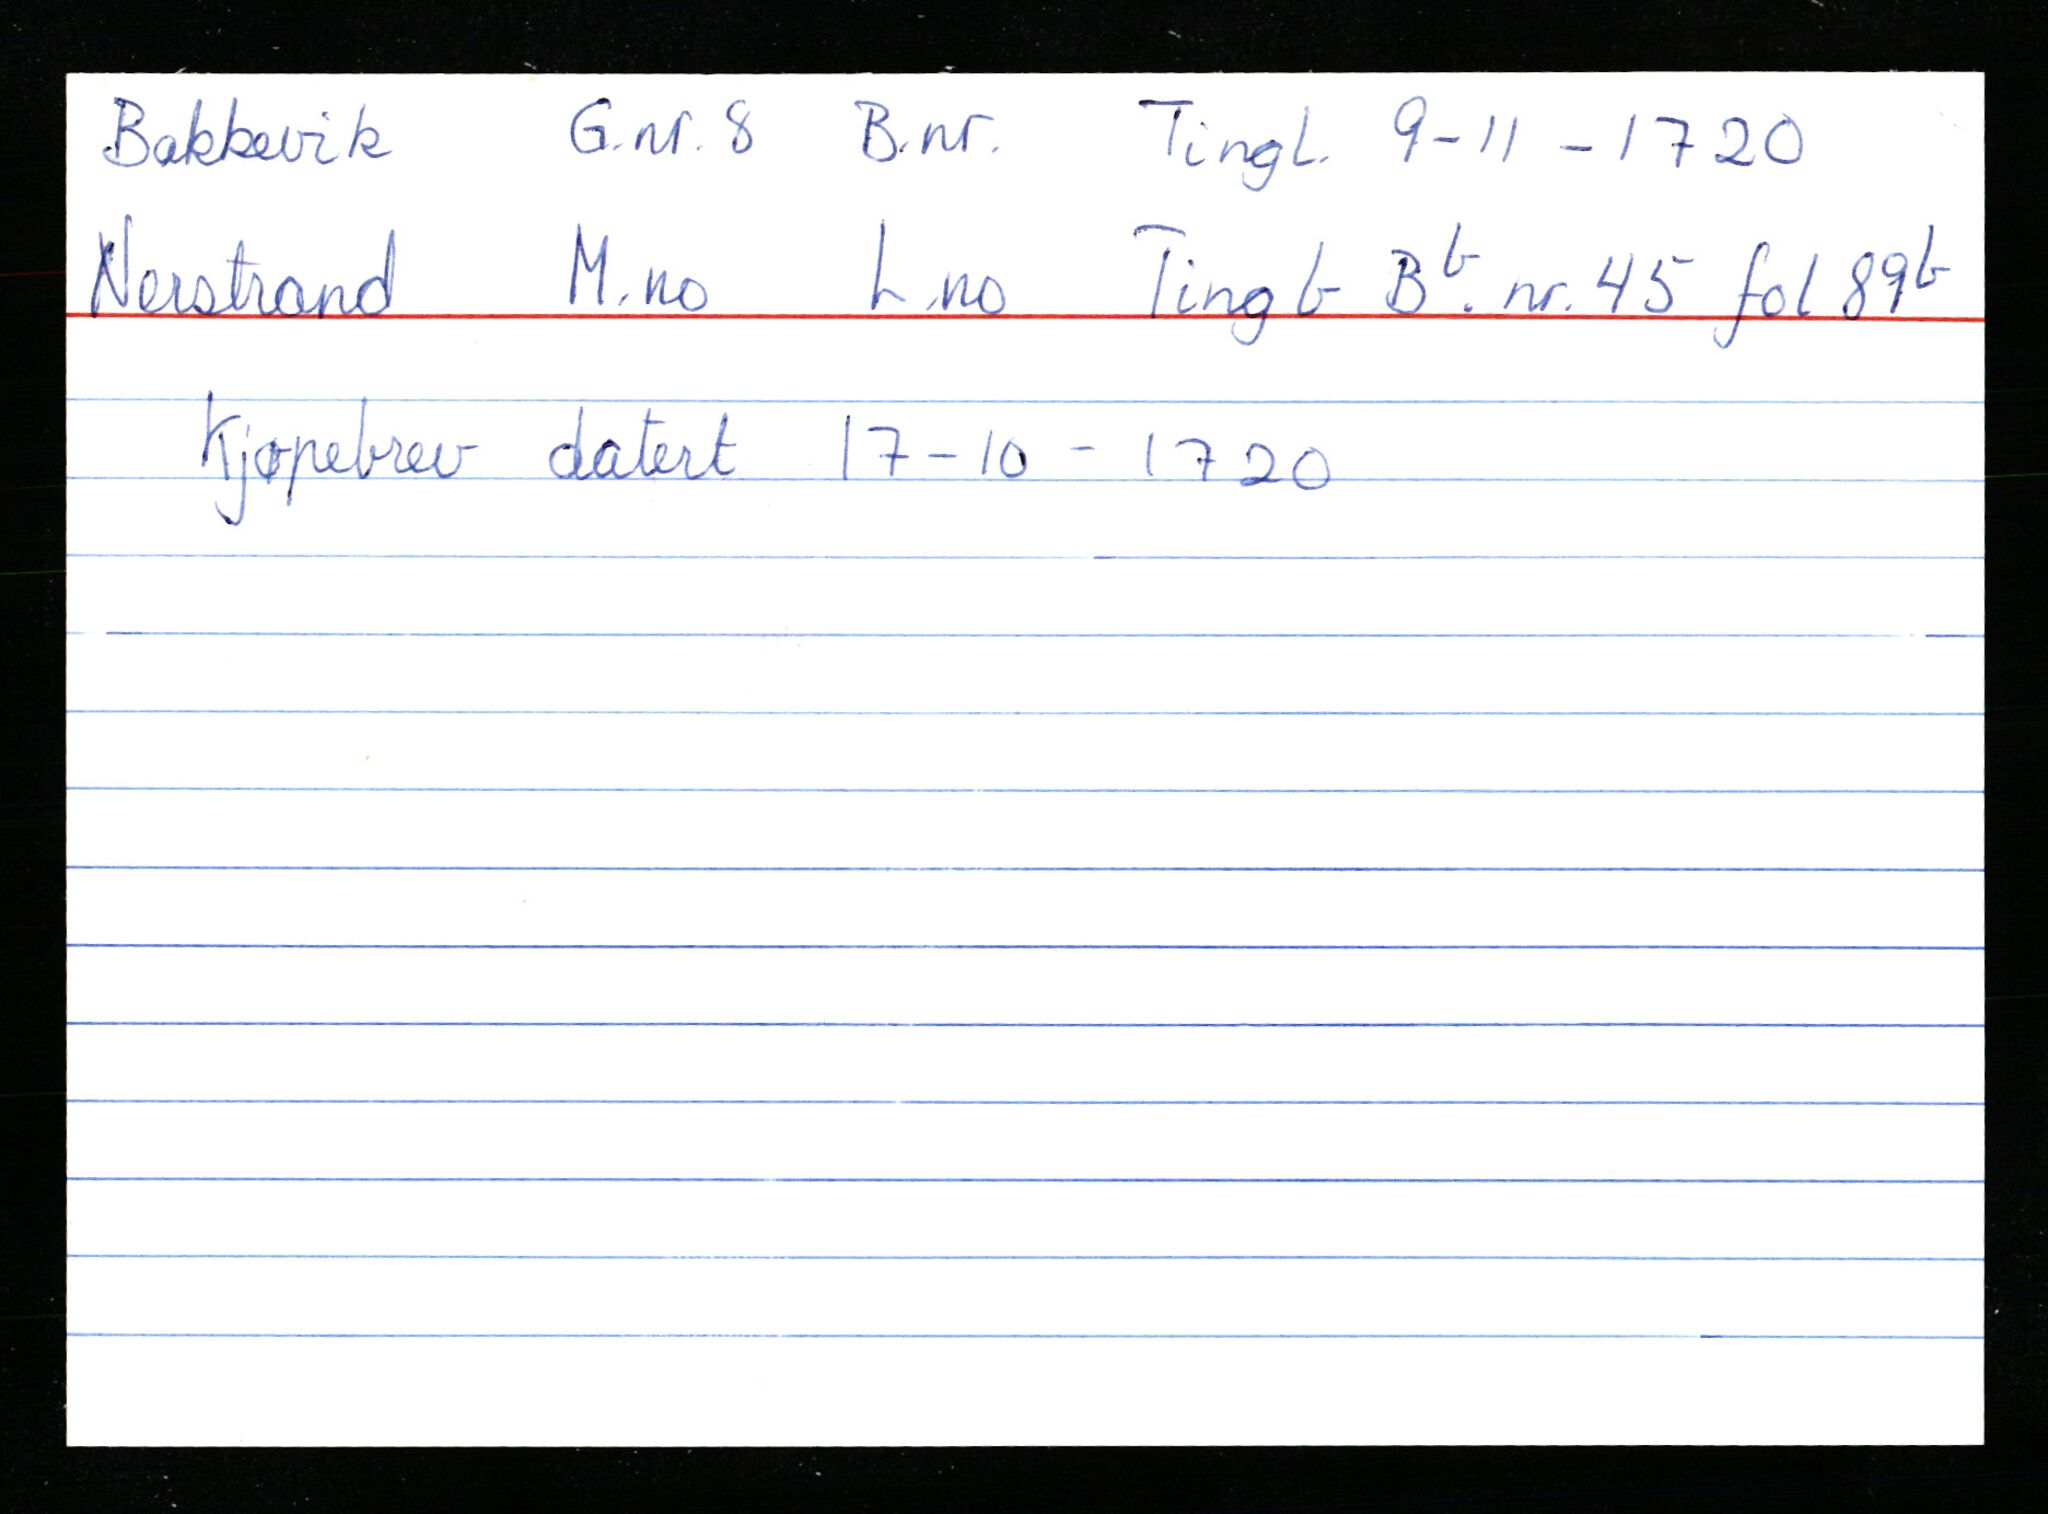 Bakkevik G.nr. 8 B.nr. Tingl. 9-11-1720
Nerstrand M.no L.no Tingb Bb. nr. 45 fol 89b
Kjøpebrev datert 17-10-1720